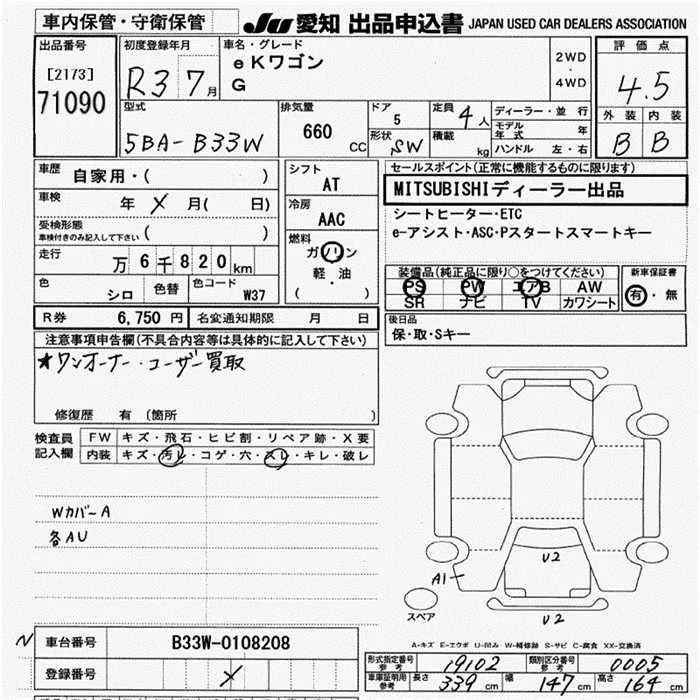 車内保管・守衛保管
JU 愛知 出品申込書 JAPAN USED CAR DEALERS ASSOCIATION
出品番号
[2173]
71090
初度登録年月
R3 7月
車名・グレード
eKワゴン
G
2WD
・
4WD
評価点
4.5
外装 内装
B B
型式
5BA-B33W
排気量
660 CC
ドア
5
形状
SW
定員 4人
積載 kg
ディーラー・並行
モデル年式 年
ハンドル 左・右
車歴
自家用・( )
車検
年 X 月( 日)
受検形態
車検付きのみ記入して下さい ( )
走行
万 6千 8 2 0 km
色
シロ
色替
色コード
W37
シフト
AT
冷房
AAC
燃料
ガソリン
軽・油
( )
セールスポイント(正常に機能するものに限ります)
MITSUBISHIディーラー出品
シートヒーター・ETC
e-アシスト・ASC・Pスタートスマートキー
装備品(純正品に限り○をつけてください)
PS PW エアB AW
SR ナビ TV カワシート
新車保証書
有・無
R券 6,750 円 名変通知期限 月 日
後日品
保・取・Sキー
注意事項申告欄(不具合内容等は具体的に記入して下さい)
★ワンオーナー・ユーザー買取
修復歴 有 (箇所 )
検査員
記入欄
FW キズ・飛石・ヒビ割・リペア跡・X要
内装 キズ・汚レ・コゲ・穴・スレ・キレ・破レ
WカバーA
各AU
U2
A1
U2
スペア
A-キズ E-エクボ U-凹み W-補修跡 S-サビ C-腐食 XX-交換済
N
車台番号 B33W-0108208
登録番号 X
形式指定番号 参考 19102 類別区分番号 参考 0005
車庫証明用 参考 長さ 339 cm 幅 147 cm 高さ 164 cm